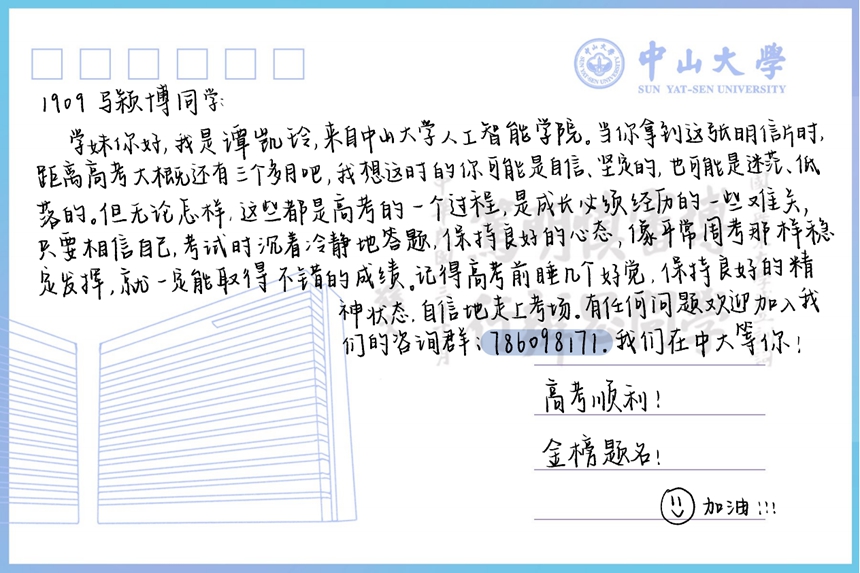 中山大学
SUN YAT-SEN UNIVERSITY
1909 马颖博同学:
学妹你好,我是谭凯玲,来自中山大学人工智能学院。当你拿到这张明信片时,
距离高考大概还有三个多月吧,我想这时的你可能是自信、坚定的,也可能是迷茫、低
落的。但无论怎样,这些都是高考的一个过程,是成长必须经历的一些难关,
只要相信自己,考试时沉着冷静地答题,保持良好的心态,像平常周考那样稳
定发挥,就一定能取得不错的成绩。记得高考前睡几个好觉,保持良好的精
神状态,自信地走上考场。有任何问题欢迎加入我
们的咨询群:786098171.我们在中大等你!
高考顺利!
金榜题名!
加油!!!